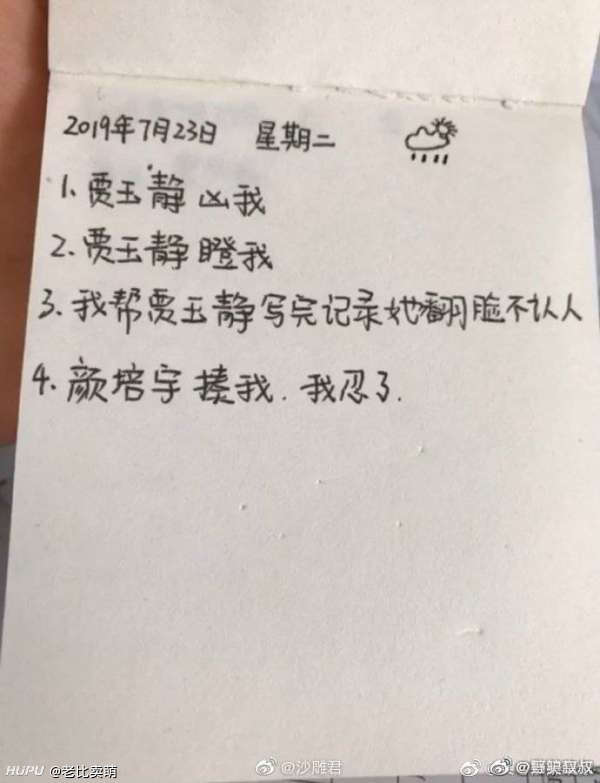 2019年7月23日 星期二
1.贾玉静凶我
2.贾玉静瞪我
3.我帮贾玉静写完记录她翻脸不认人
4.颜培宇揍我.我忍了.
HUPU @老比卖萌 @沙雕君